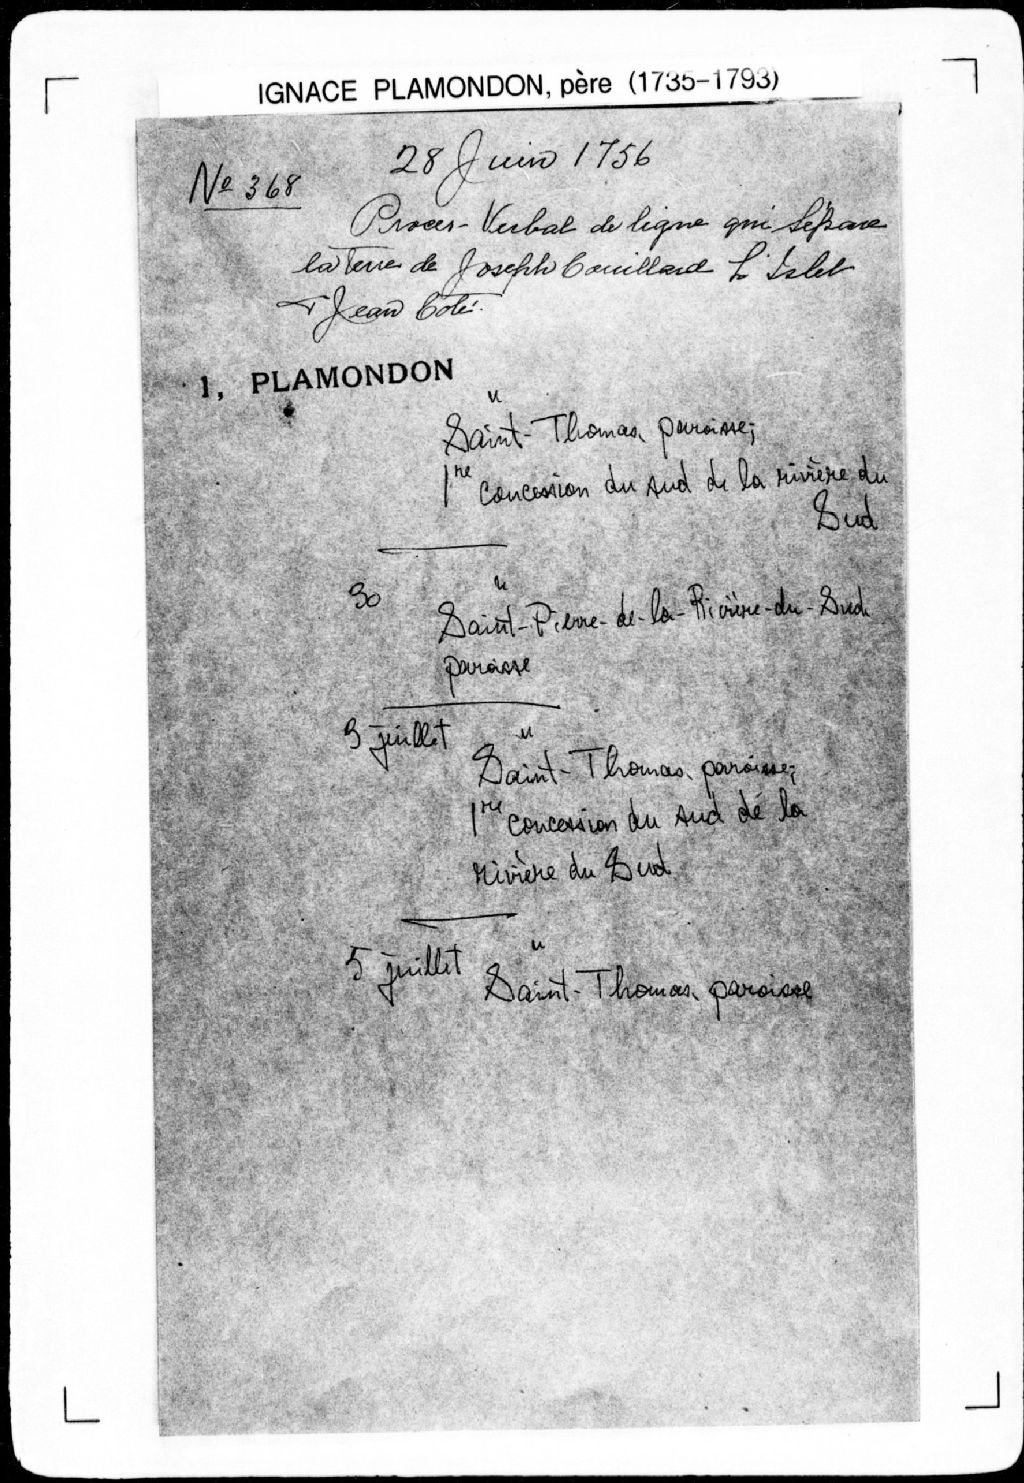 IGNACE PLAMONDON, père (1735-1793)
28 Juin 1756
No 368
Proces-Verbal de ligne qui Sépare
la Terre de Joseph Couillard L'Islet
& Jean Coté.
1, PLAMONDON
"
Saint-Thomas, paroisse;
1re concession du sud de la rivière du
Sud
30 "
Saint-Pierre-de-la-Rivière-du-Sud
paroisse
3 juillet "
Saint-Thomas, paroisse;
1re concession du sud de la
rivière du Sud
5 juillet "
Saint-Thomas, paroisse